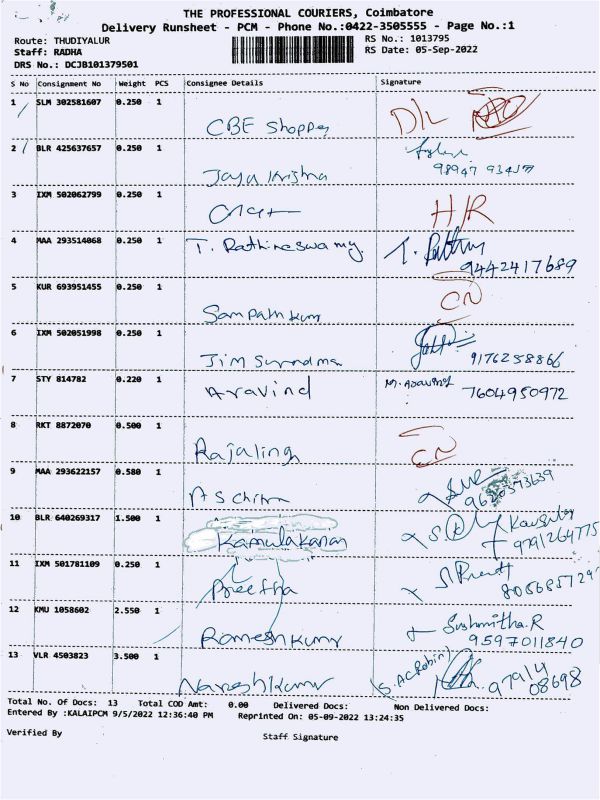 THE PROFESSIONAL COURIERS, Coimbatore
Delivery Runsheet - PCM - Phone No.:0422-3505555 - Page No.:1
Route: THUDIYALUR RS No.: 1013795
Staff: RADHA RS Date: 05-Sep-2022
DRS No.: DCJB101379501
S No Consignment No Weight PCS Consignee Details Signature
1 SLM 302581607 0.250 1
CBE Shoppy D/L
2 BLR 425637657 0.250 1
Jaya Krishna
3 IXM 502062799 0.250 1
H/R
4 MAA 293514068 0.250 1 T. Rathineswamy.
9442417689
5 KUR 693951455 0.250 1
Sampathkumr CN
6 IXM 502051998 0.250 1
Jim 9176258866
7 STY 814782 0.220 1 Aravind 7604950972
8 RKT 8872070 0.500 1
Rajaling CN
9 MAA 293622157 0.580 1
A S Chitra
10 BLR 640269317 1.500 1
Kamulakanan
11 IXM 501781109 0.250 1
Preetha
12 KMU 1058602 2.550 1 Sushmitha.R
Romeshkumr 9597011840
13 VLR 4503823 3.500 1
Nareshkumar 97914
08698
Total No. Of Docs: 13 Total COD Amt: 0.00 Delivered Docs: Non Delivered Docs:
Entered By :KALAIPCM 9/5/2022 12:36:40 PM Reprinted On: 05-09-2022 13:24:35
Verified By Staff Signature